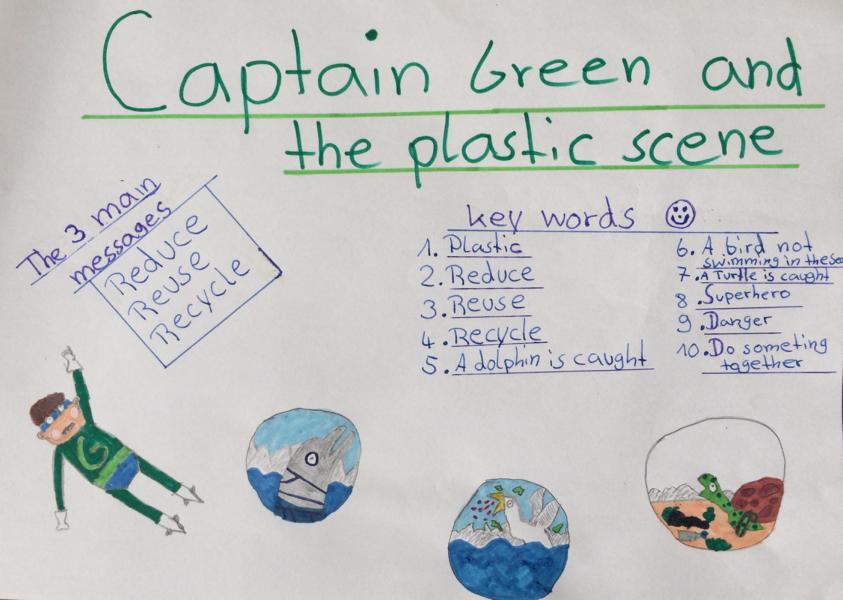 Captain Green and
the plastic scene
The 3 main
messages
Reduce
Reuse
Recycle
key words
1. Plastic
2. Reduce
3. Reuse
4. Recycle
5. A dolphin is caught
6. A bird not
swimming in the sea
7. A Turtle is caught
8. Superhero
9. Danger
10. Do someting
together
G